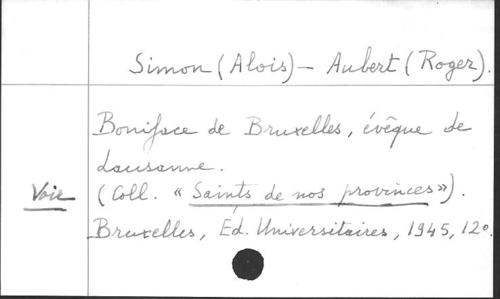 Simon (Alois) – Aubert (Roger).
Boniface de Bruxelles, évêque de
Lausanne.
Voir (Coll. « Saints de nos provinces »).
Bruxelles, Éd. Universitaires, 1945, 12°.